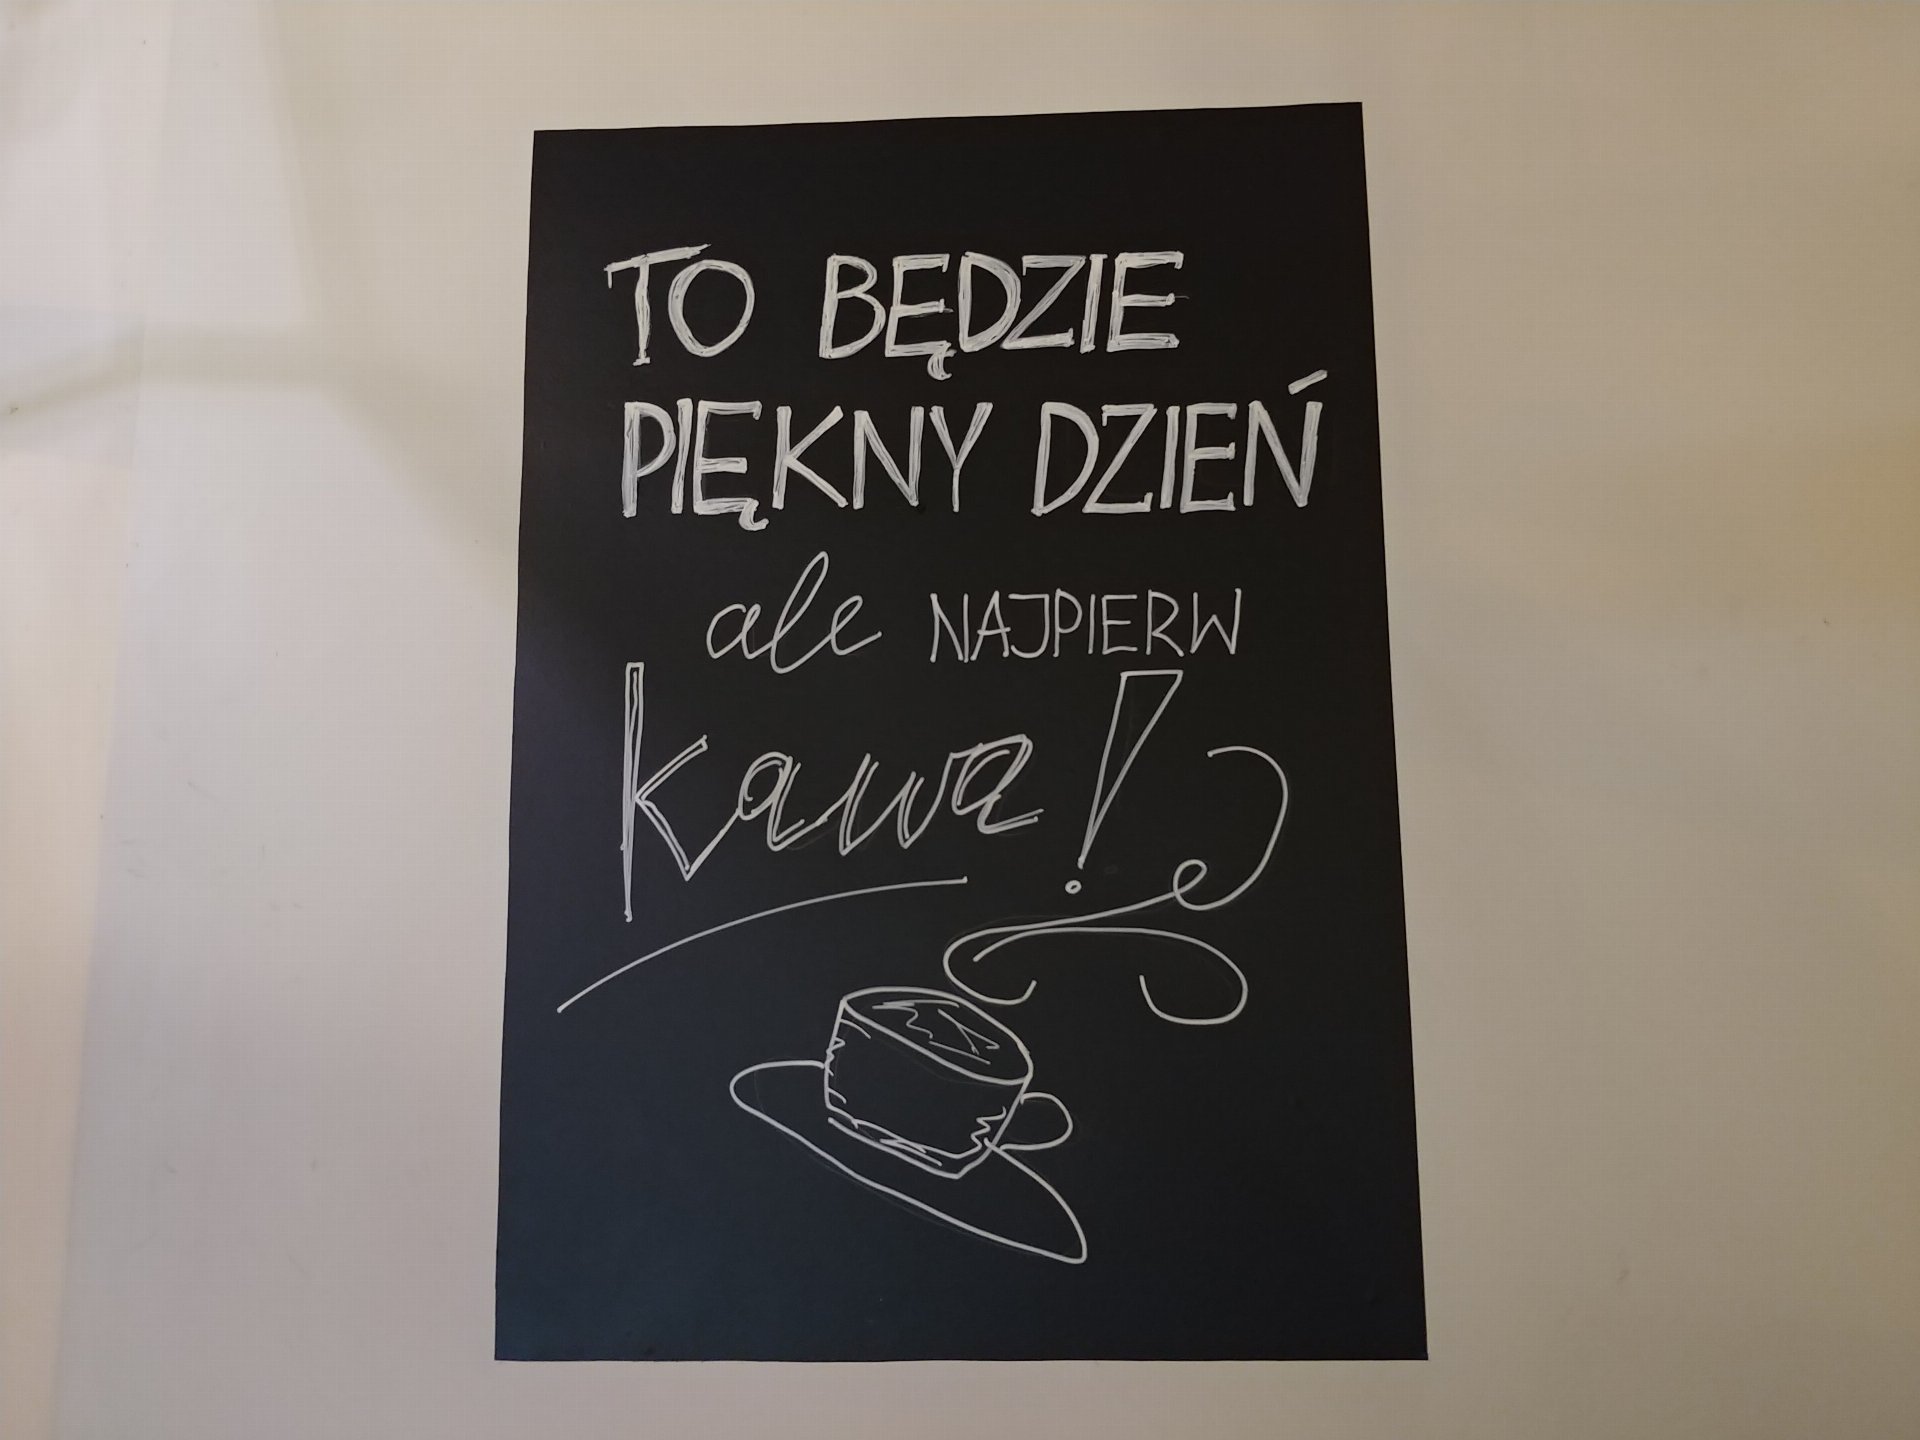 TO BĘDZIE
PIĘKNY DZIEŃ
ale NAJPIERW
kawa!